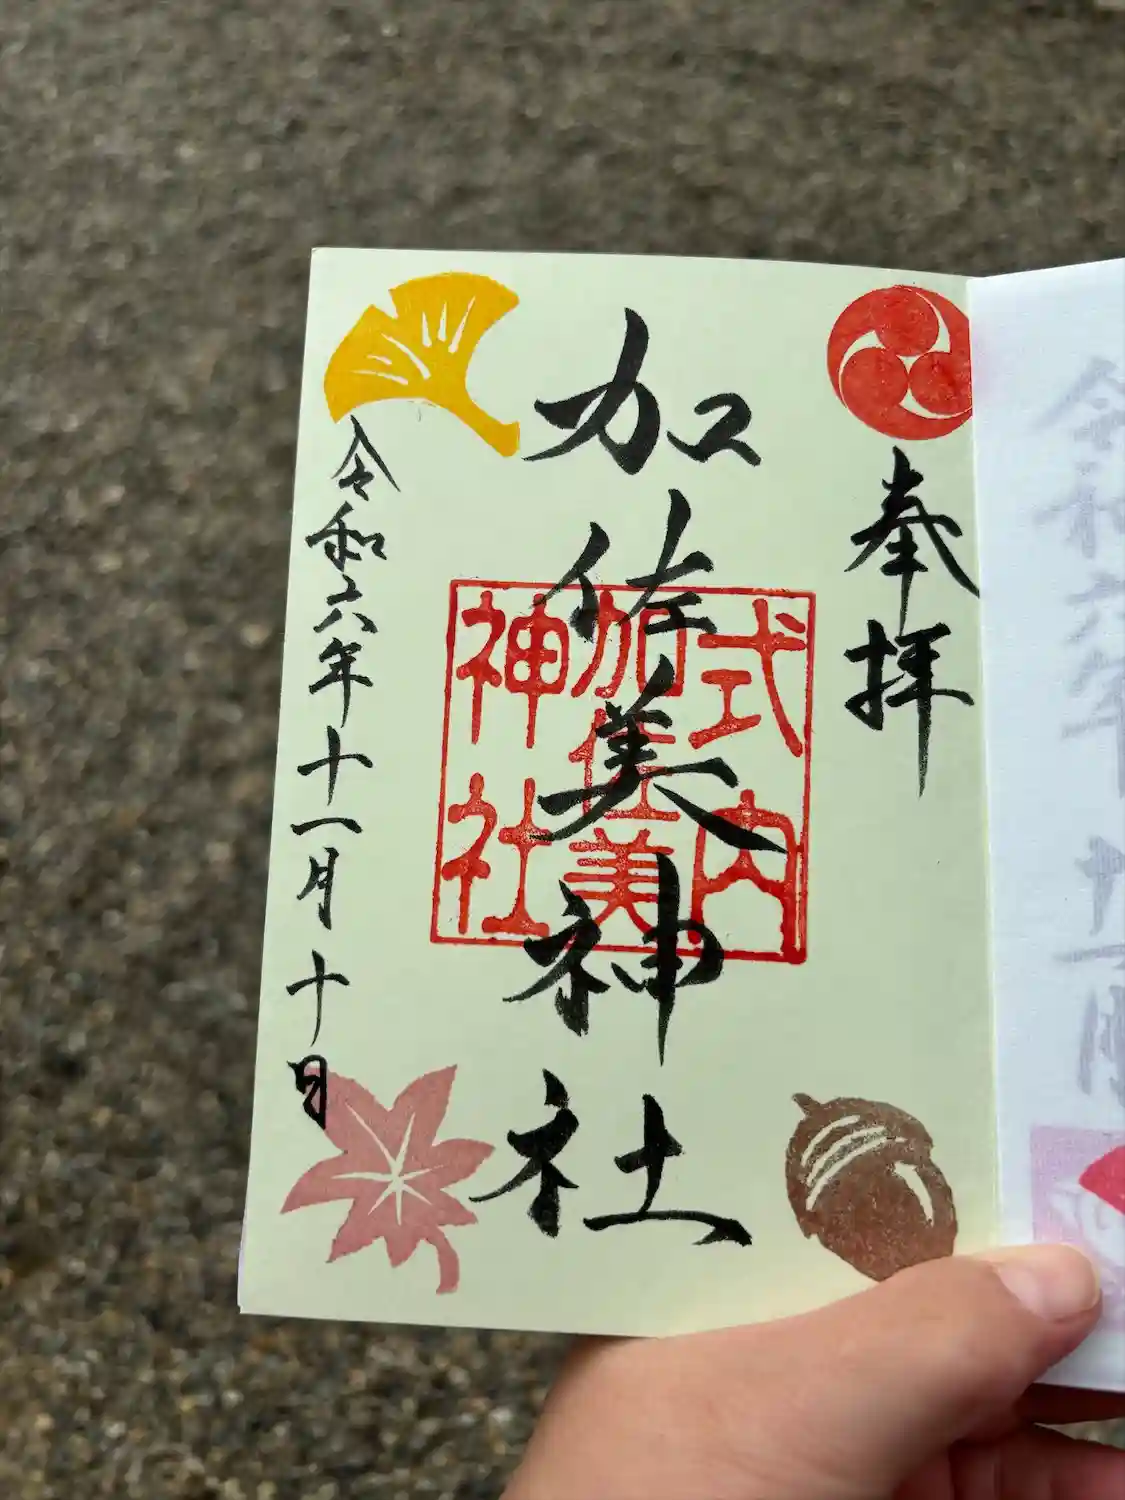 奉拝
加佐美神社
式内
加佐美
神社
令和六年十一月十日